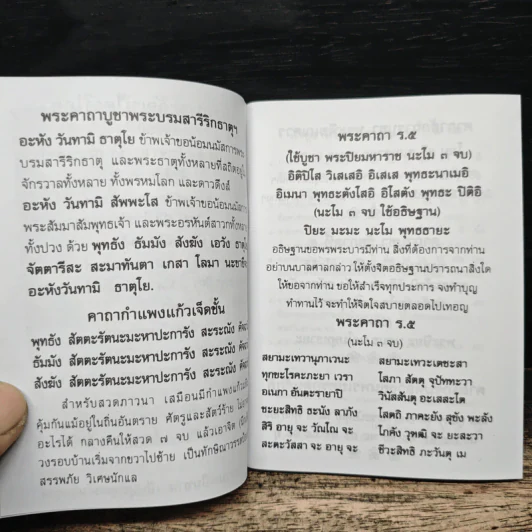 พระคาถาบูชาพระบรมสารีริกธาตุฯ
อะหัง วันทามิ ธาตุโย ข้าพเจ้าขอน้อมนมัสการพระ
บรมสารีริกธาตุ และพระธาตุทั้งหลายที่สถิตอยู่ใน
จักรวาลทั้งหลาย ทั้งพรหมโลก และดาวดึงส์
อะหัง วันทามิ สัพพะโส ข้าพเจ้าขอน้อมนมัสการ
พระสัมมาสัมพุทธเจ้า และพระอรหันต์สาวกทั้งหลาย
ทั้งปวง ด้วย พุทธัง ธัมมัง สังฆัง เอวัง ธาตุ
จัตตารีสะ สะมาทันตา เกสา โลมา นะขา
อะหังวันทามิ ธาตุโย.
คาถากำแพงแก้วเจ็ดชั้น
พุทธัง สัตตะรัตนะมะหาปะการัง สะระณัง คัจฉา
ธัมมัง สัตตะรัตนะมะหาปะการัง สะระณัง คัจฉา
สังฆัง สัตตะรัตนะมะหาปะการัง สะระณัง คัจฉา
สำหรับสวดภาวนา เสมือนมีกำแพงแก้ว
คุ้มกันแม้อยู่ในถิ่นอันตราย ศัตรูและสัตว์ร้าย
อะไรได้ กลางคืนให้สวด ๗ จบ แล้วเอาจิต
วงรอบบ้านเริ่มจากขวาไปซ้าย เป็นทักษิณาวรรต
สรรพภัย วิเศษนักแล
พระคาถา ร.๕
(ใช้บูชา พระปิยมหาราช นะโม ๓ จบ)
อิติปิโส วิเสเสอิ อิเสเส พุทธะนาเมอิ
อิเมนา พุทธะตังโสอิ อิโสตัง พุทธะ ปิติอิ
(นะโม ๓ จบ ใช้อธิษฐาน)
ปิยะ มะมะ นะโม พุทธธายะ
อธิษฐานขอพรพระบารมีท่าน สิ่งที่ต้องการจากท่าน
อย่าบนบาลศาลกล่าว ให้ตั้งจิตอธิษฐานปรารถนาสิ่งใด
ให้ขอจากท่าน ขอให้สำเร็จทุกประการ จงทำบุญ
ทำทานไว้ จะทำให้จิตใจสบายตลอดไปเทอญ
พระคาถา ร.๕
(นะโม ๓ จบ)
สยามะเทวานุภาเวนะ สยามะเทวะเตชะสา
ทุกขะโรคะภะยา เวรา โสภา สัตตุ จุปัททะวา
อเนกา อันตะรายาปิ วินัสสันตุ อะเสสะโต
ชะยะสิทธิ ธะนัง ลาภัง โสตถิ ภาคะยัง สุขัง พะลัง
สิริ อายุ จะ วัณโณ จะ โภคัง วุฑฒิ จะ ยะสะวา
สะตะวัสสา จะ อายู จะ ชีวะสิทธิ ภะวันตุ เม